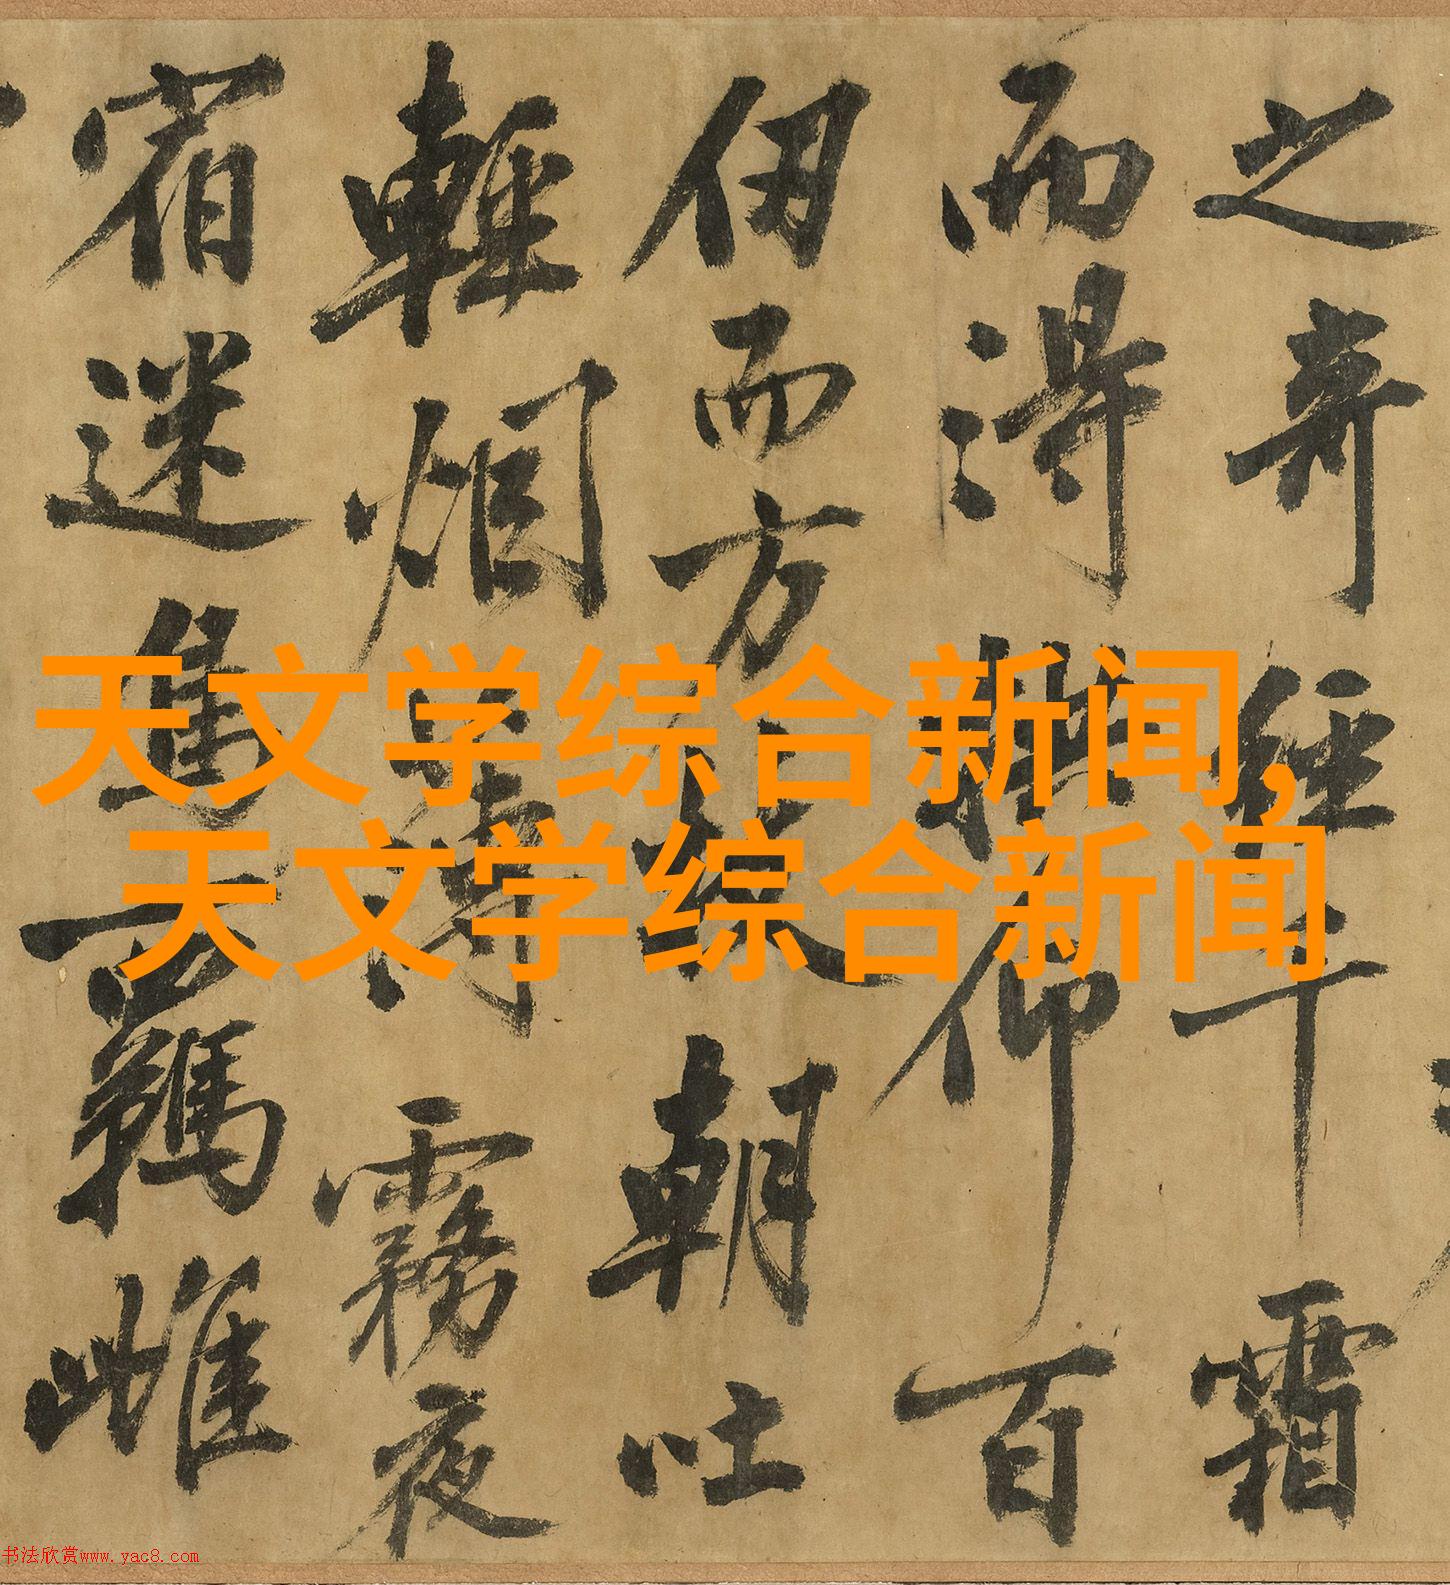 之奇經千霜
而得仰百
仞而方朝吐
輕烟薄霧夜
宿迷羈雌
天文学综合新闻,
天文学综合新闻
书法欣赏www.yac8.com